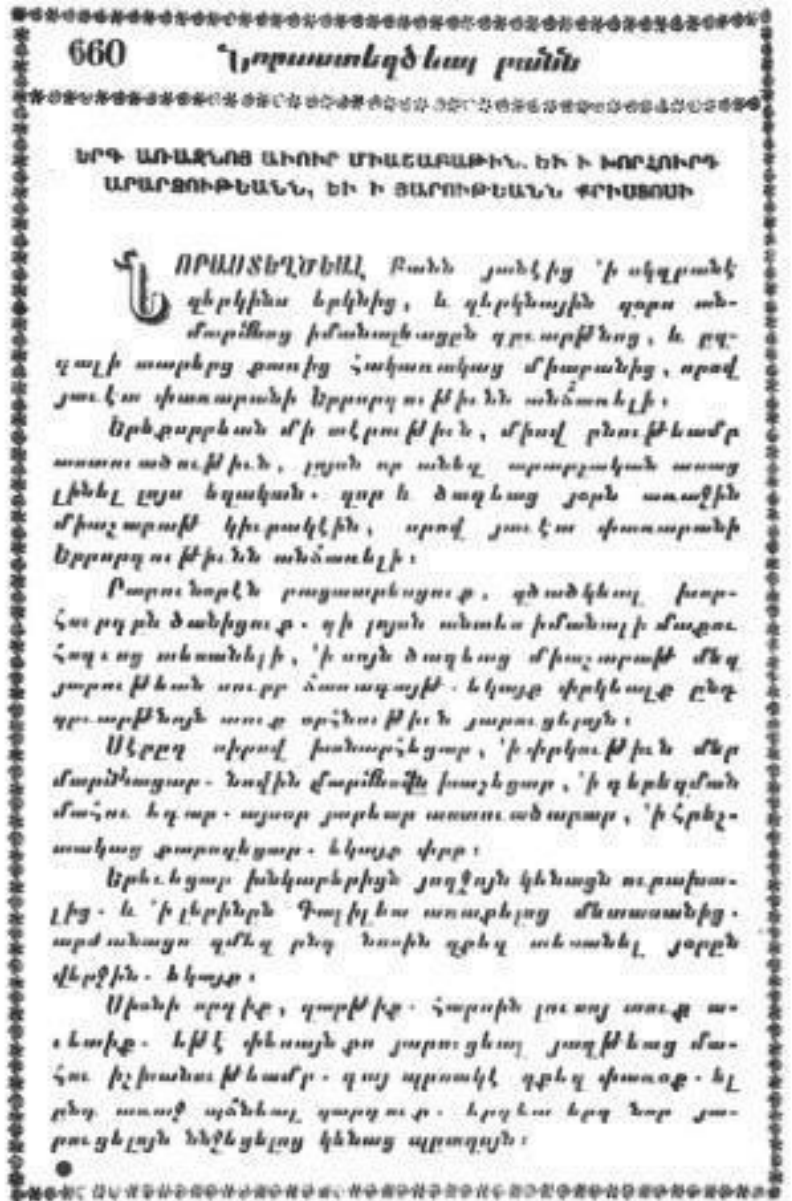 660 Նորաստեղծեալ բանն
ԵՐԳ ԱՌԱՋՆՈՅ ԱՒՈՒՐ ՄԻԱՇԱԲԱԹԻՆ. ԵՒ Ի ԽՈՐՀՈՒՐԴ
ԱՐԱՐՉՈՒԹԵԱՆՆ, ԵՒ Ի ՅԱՐՈՒԹԵԱՆՆ ՔՐԻՍՏՈՍԻ
ՆՈՐԱՍՏԵՂԾԵԱԼ Բանն յանէից ՚ի սկզբանէ
զերկինս երկնից, և զերկնային զօրս ան-
մարմնոց իմանալեացըն զըւարթնոց, և ըզ-
գալի տարերց քառից հակառակաց միաբանից, որով
յաւէտ փառաբանի Երրորդութիւնն անճառելի։
Երեքսրբեան մի տէրութիւն, միով բնութեամբ
աստուածութիւն, լոյսն որ անեղ արարչական առաց
լինել լոյս եղական. զոր և ծագեաց յօրն առաջին
միաշաբաթ կիւրակէին, որով յաւէտ փառաբանի
Երրորդութիւնն անճառելի։
Բարունօրէն բացատրեսցուք, զծածկեալ խոր-
հուրդըն ծանիցուք. զի լոյսն անտես իմանալի մաքու
հոգւոց տեսանելի, ՚ի սոյն ծագեաց միաշաբաթ մեզ
յարութեան սուրբ ճառագայթ. եկայք փրկեալք ընդ
զըւարթնոյն տուք օրհնութիւն յարուցելոյն։
Սէրըդ սիրով խոնարհեցար, ՚ի փրկութիւն մեր
մարմնացար. նովին մարմնովն խաչեցար, ՚ի գերեզման
մահու եդար. այսօր յարեար աստուածաբար, ՚ի հրեշ-
տակաց քարոզեցար. եկայք փրր։
Երեւեցար խնկաբերիցն յողջոյն կենացն ուրախա-
լից. և ՚ի լերինըն Գալիլեա առաքելոց մետասանից.
արժանացո զմեզ ընդ նոսին զքեզ տեսանել յօրըն
վերջին. եկայք։
Սիօնի որդիք, զարթիք. հարսին լուսոյ տուք ա-
ւետիք. եթէ փեսայն քո յարուցեալ յաղթեաց մա-
հու իշխանութեամբ. գայ պըսակէ զքեզ փառօք. ել
ընդ առաջ պաճնեալ զարդուք. երգեա երգ նոր յա-
րուցելոյն ննջեցելոց կենաց պըտղոյն։